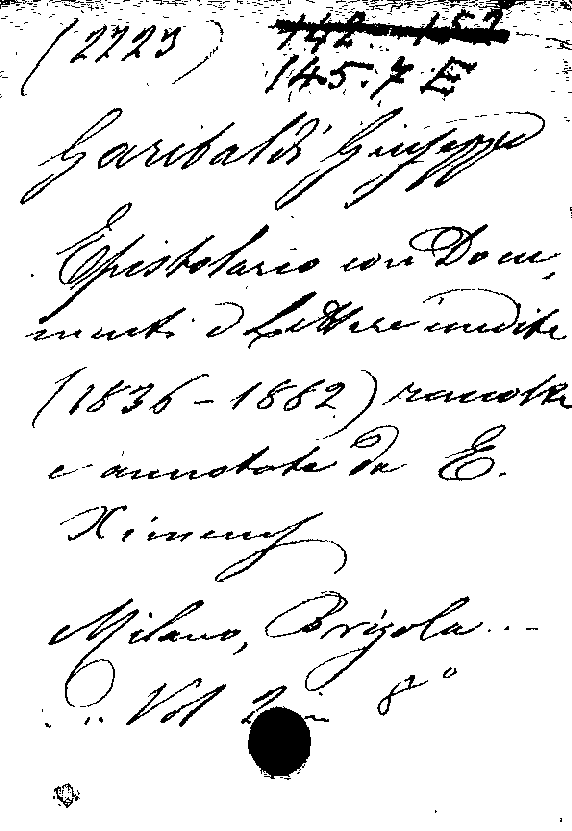 (2223) 142. 152
145.7 E
Garibaldi Giuseppe
Epistolario con Docu,
menti e Lettere inedite
(1836-1882) raccolte
e annotate da E.
Ximenes
Milano, Brigola..-
.. Vol 2 in 8°